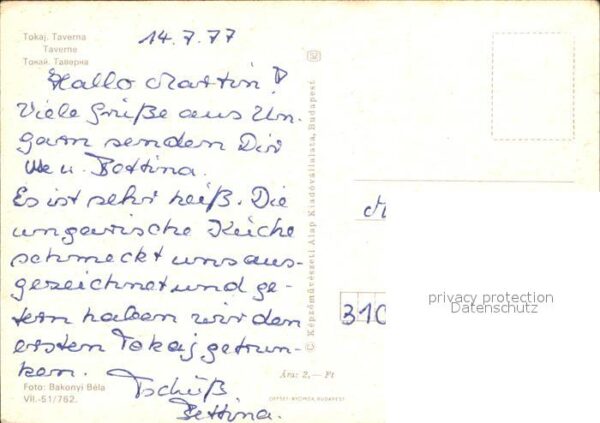 Tokaj. Taverna
Taverne
Токай. Таверна
14.7.77
Hallo Martin!
Viele Grüße aus Un-
garn senden Dir
Uwe u. Bettina.
Es ist sehr heiß. Die
ungarische Küche
schmeckt uns aus-
gezeichnet und ge-
stern haben wir den
ersten Tokaj getrun-
ken.
Tschüß
Bettina.
Foto: Bakonyi Béla
VII.-51/762.
© Képzőművészeti Alap Kiadóvállalata, Budapest
Ára: 2,— Ft
OFFSET-NYOMDA BUDAPEST
310
privacy protection
Datenschutz